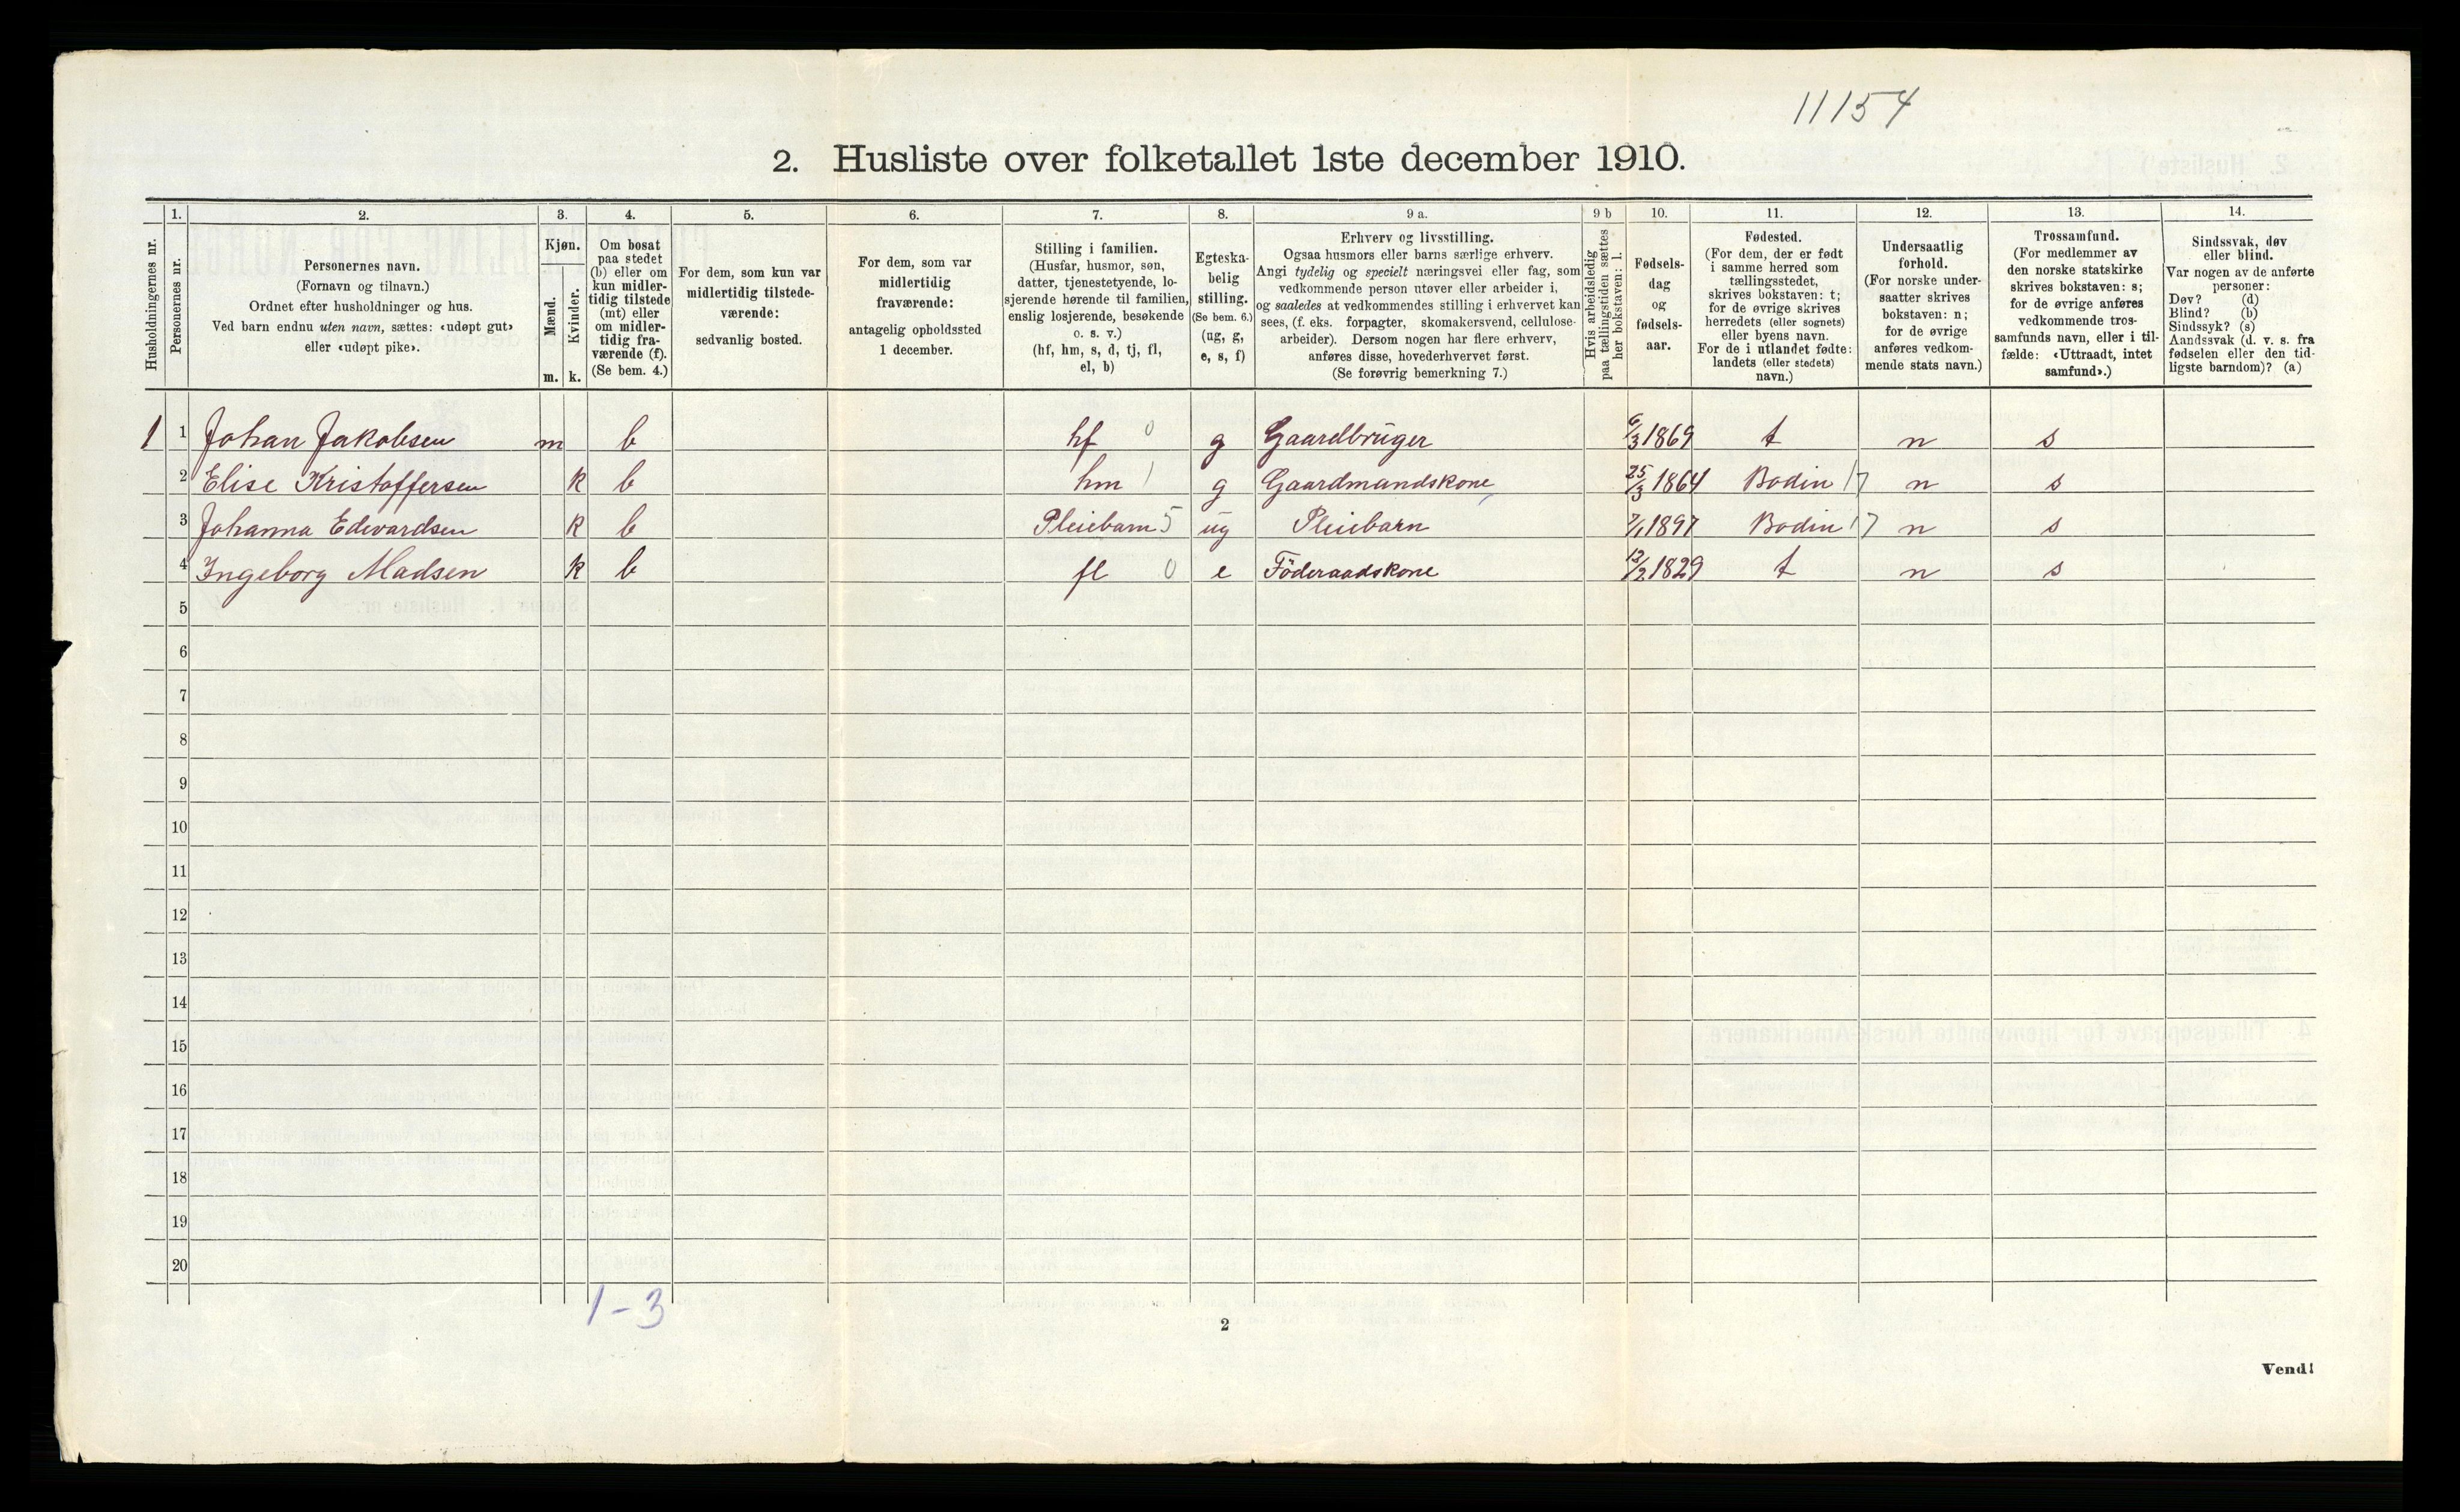 11154
2. Husliste over folketallet 1ste december 1910.
1. 2. 3. 4. 5. 6. 7. 8. 9 a. 9 b 10. 11. 12. 13. 14.
Husholdningernes nr.
Personernes nr.
Personernes navn.
(Fornavn og tilnavn.)
Ordnet efter husholdninger og hus.
Ved barn endnu uten navn, sættes: «udøpt gut»
eller «udøpt pike».
Kjøn.
Mænd.
Kvinder.
m. k.
Om bosat
paa stedet
(b) eller om
kun midler-
tidig tilstede
(mt) eller
om midler-
tidig fra-
værende (f).
(Se bem. 4.)
For dem, som kun var
midlertidig tilstede-
værende:
sedvanlig bosted.
For dem, som var
midlertidig
fraværende:
antagelig opholdssted
1 december.
Stilling i familien.
(Husfar, husmor, søn,
datter, tjenestetyende, lo-
sjerende hørende til familien,
enslig losjerende, besøkende
o. s. v.)
(hf, hm, s, d, tj, fl,
el, b)
Egteska-
belig
stilling.
(Se bem. 6.)
(ug, g,
e, s, f)
Erhverv og livsstilling.
Ogsaa husmors eller barns særlige erhverv.
Angi tydelig og specielt næringsvei eller fag, som
vedkommende person utøver eller arbeider i,
og saaledes at vedkommendes stilling i erhvervet kan
sees, (f. eks. forpagter, skomakersvend, cellulose-
arbeider). Dersom nogen har flere erhverv,
anføres disse, hovederhvervet først.
(Se forøvrig bemerkning 7.)
Hvis arbeidsledig
paa tællingstiden sættes
her bokstaven: l.
Fødsels-
dag
og
fødsels-
aar.
Fødested.
(For dem, der er født
i samme herred som
tællingsstedet,
skrives bokstaven: t;
for de øvrige skrives
herredets (eller sognets)
eller byens navn.
For de i utlandet fødte:
landets (eller stedets)
navn.)
Undersaatlig
forhold.
(For norske under-
saatter skrives
bokstaven: n;
for de øvrige
anføres vedkom-
mende stats navn.)
Trossamfund.
(For medlemmer av
den norske statskirke
skrives bokstaven: s;
for de øvrige anføres
vedkommende tros-
samfunds navn, eller i til-
fælde: «Uttraadt, intet
samfund».)
Sindssvak, døv
eller blind.
Var nogen av de anførte
personer:
Døv? (d)
Blind? (b)
Sindssyk? (s)
Aandssvak (d. v. s. fra
fødselen eller den tid-
ligste barndom)? (a)
1 1 Johan Jakobsen m b hf 0 g Gaardbrüger 6/3 1869 t n s
2 Elise Kristoffersen k b hm 1 g Gaardmandskone 25/3 1864 Bodin 17 n s
3 Johanna Edevardsen k b Pleiebarn 5 üg Pleiebarn 7/1 1897 Bodin 17 n s
4 Ingeborg Madsen k b fl 0 e Föderaadskone 12/2 1829 t n s
5
6
7
8
9
10
11
12
13
14
15
16
17
18
19
20
1-3
2
Vend!